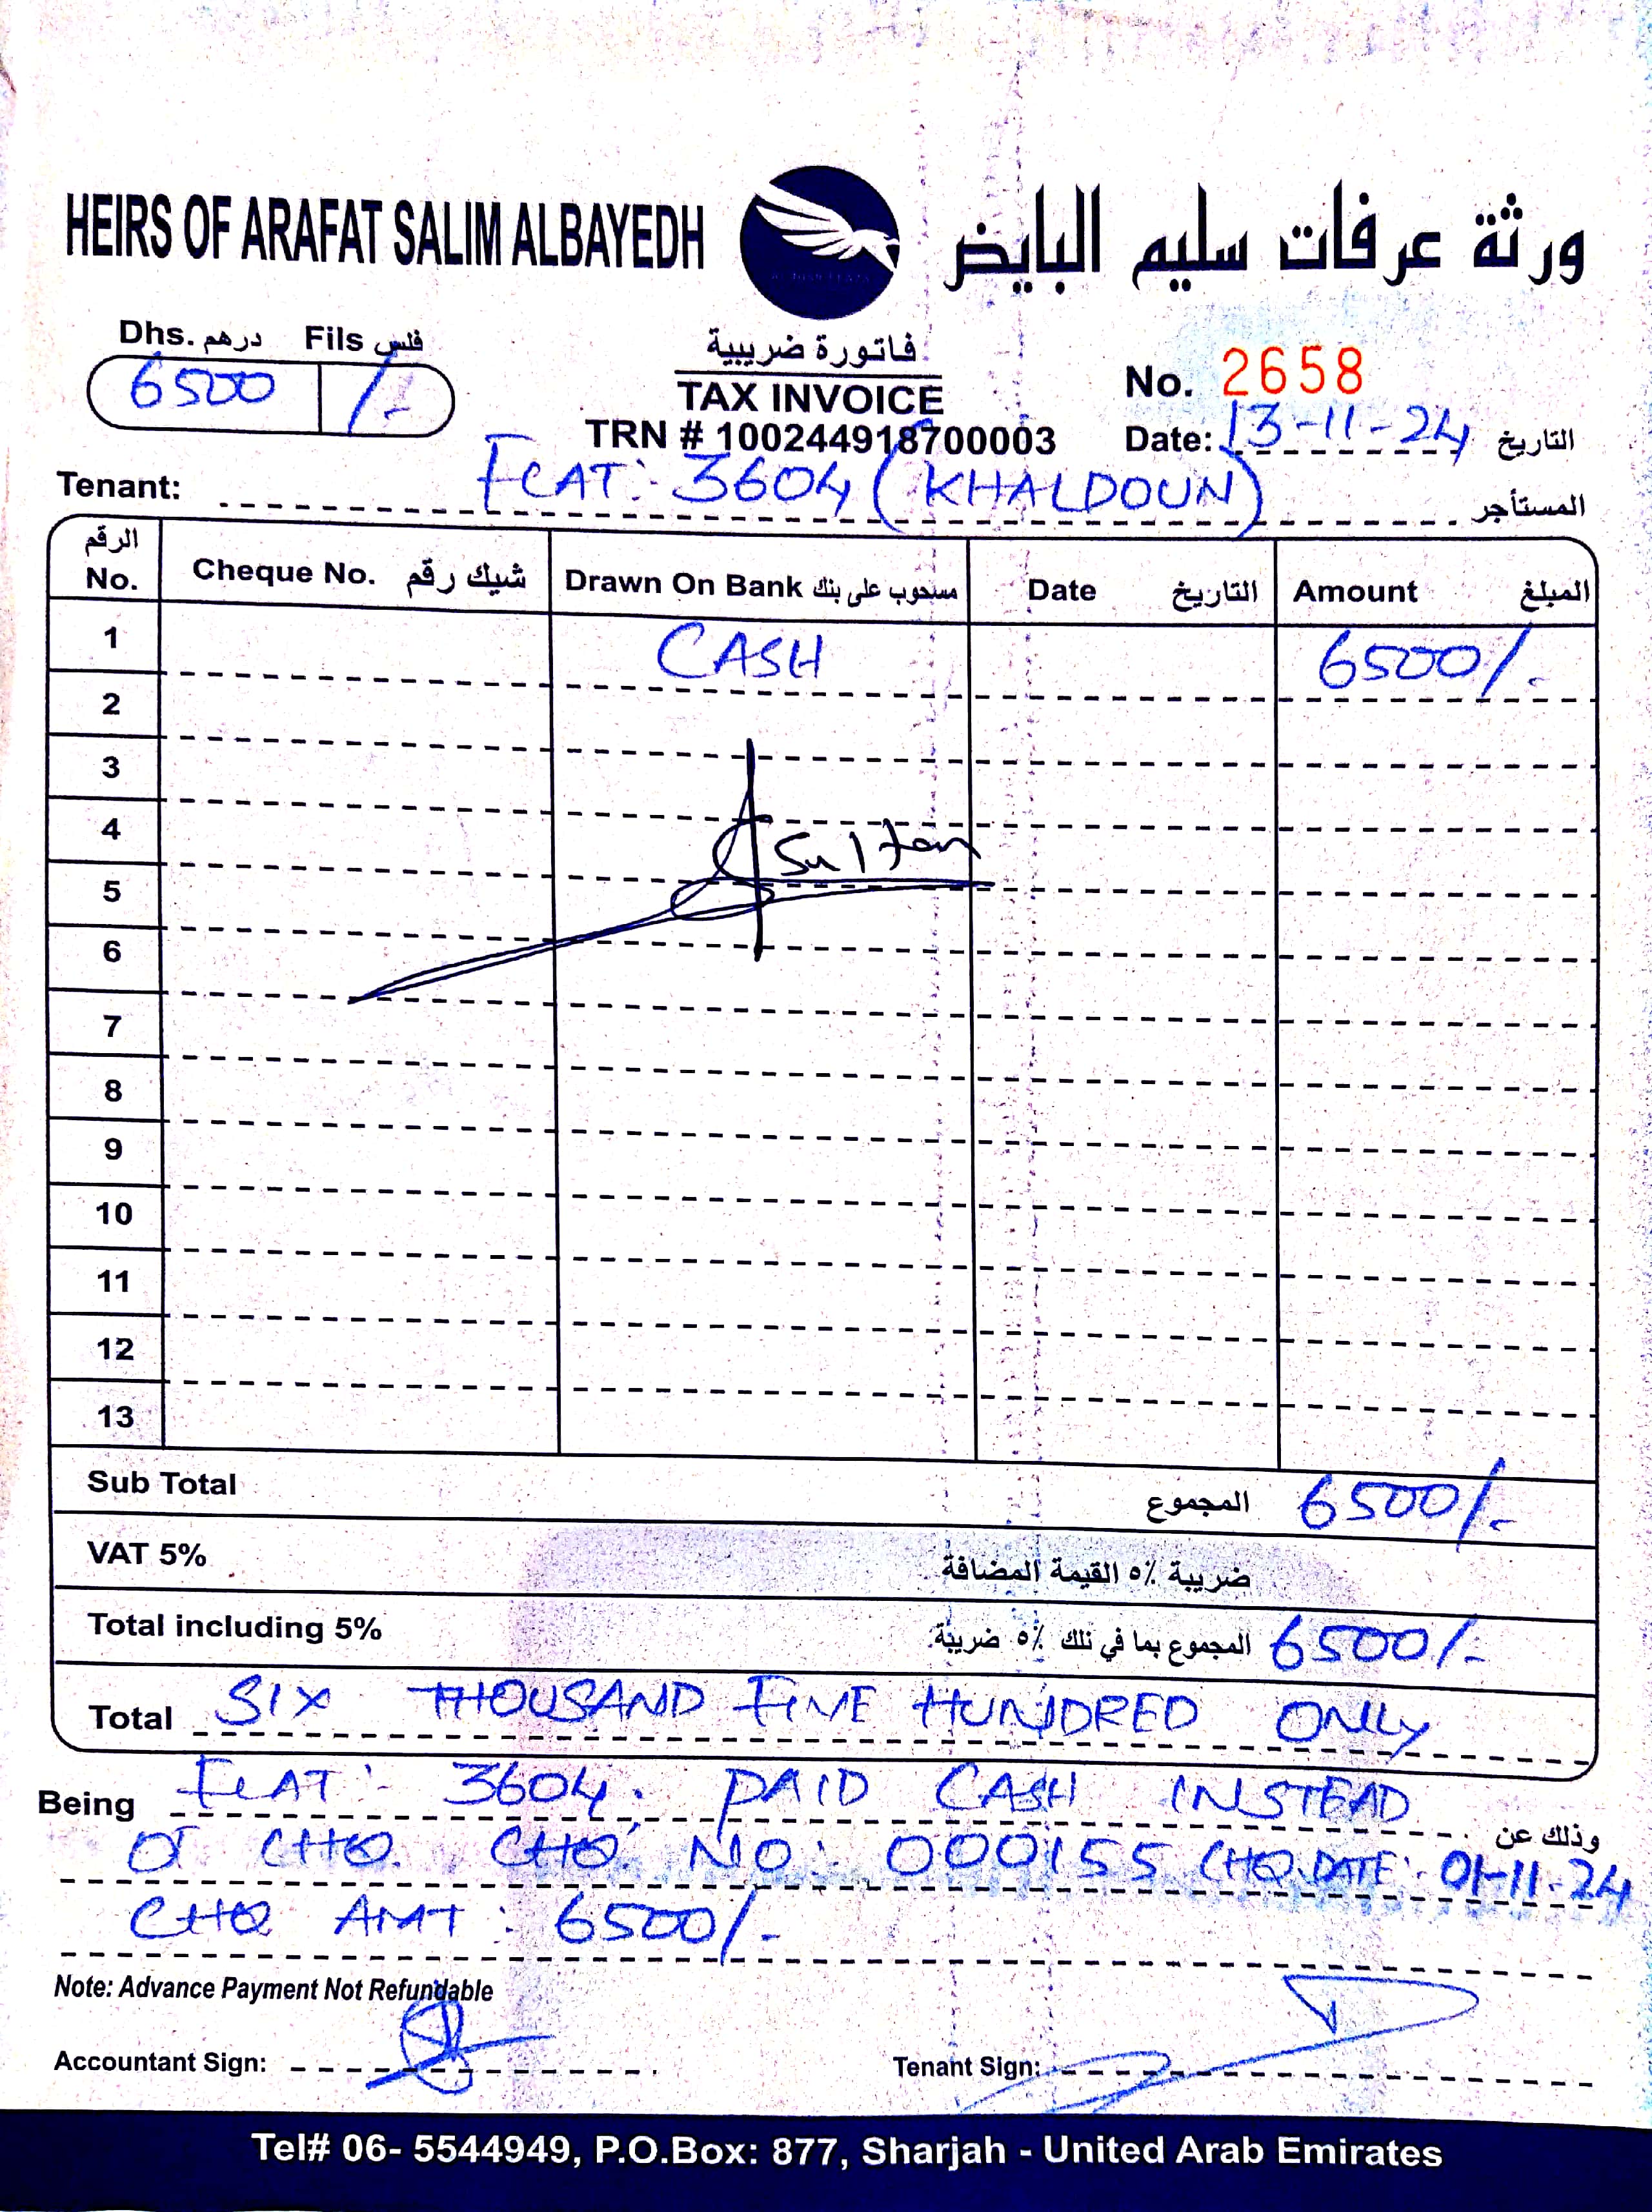 HEIRS OF ARAFAT SALIM ALBAYEDH ورثة عرفات سليم البايض
Dhs. درهم Fils فلس
6500 /-
فاتورة ضريبية
TAX INVOICE
TRN # 100244918700003
No. 2658
Date: 13-11-24 التاريخ
Tenant: FLAT: 3604 (KHALDOUN) المستأجر
الرقم No. Cheque No. شيك رقم Drawn On Bank مسحوب على بنك Date التاريخ Amount المبلغ
1 CASH 6500/-
2
3
4 Sultan
5
6
7
8
9
10
11
12
13
Sub Total المجموع 6500/-
VAT 5% ضريبة ٥٪ القيمة المضافة
Total including 5% المجموع بما في ذلك ٥٪ ضريبة 6500/-
Total SIX THOUSAND FIVE HUNDRED ONLY
Being FLAT: 3604. PAID CASH INSTEAD وذلك عن
OF CHQ. CHQ. NO: 000155 CHQ.DATE: 01-11-24
CHQ AMT: 6500/-
Note: Advance Payment Not Refundable
Accountant Sign: Tenant Sign:
Tel# 06- 5544949, P.O.Box: 877, Sharjah - United Arab Emirates